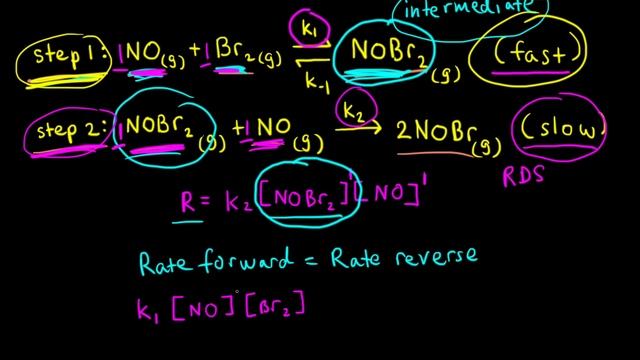 intermediate
step 1: 1NO(g) + 1Br₂(g) k₁ ⇌ k₋₁ NOBr₂(g) (fast)
step 2: 1NOBr₂(g) + 1NO(g) k₂ → 2NOBr(g) (slow)
RDS
R = k₂ [NOBr₂]¹ [NO]¹
Rate forward = Rate reverse
k₁ [NO] [Br₂]